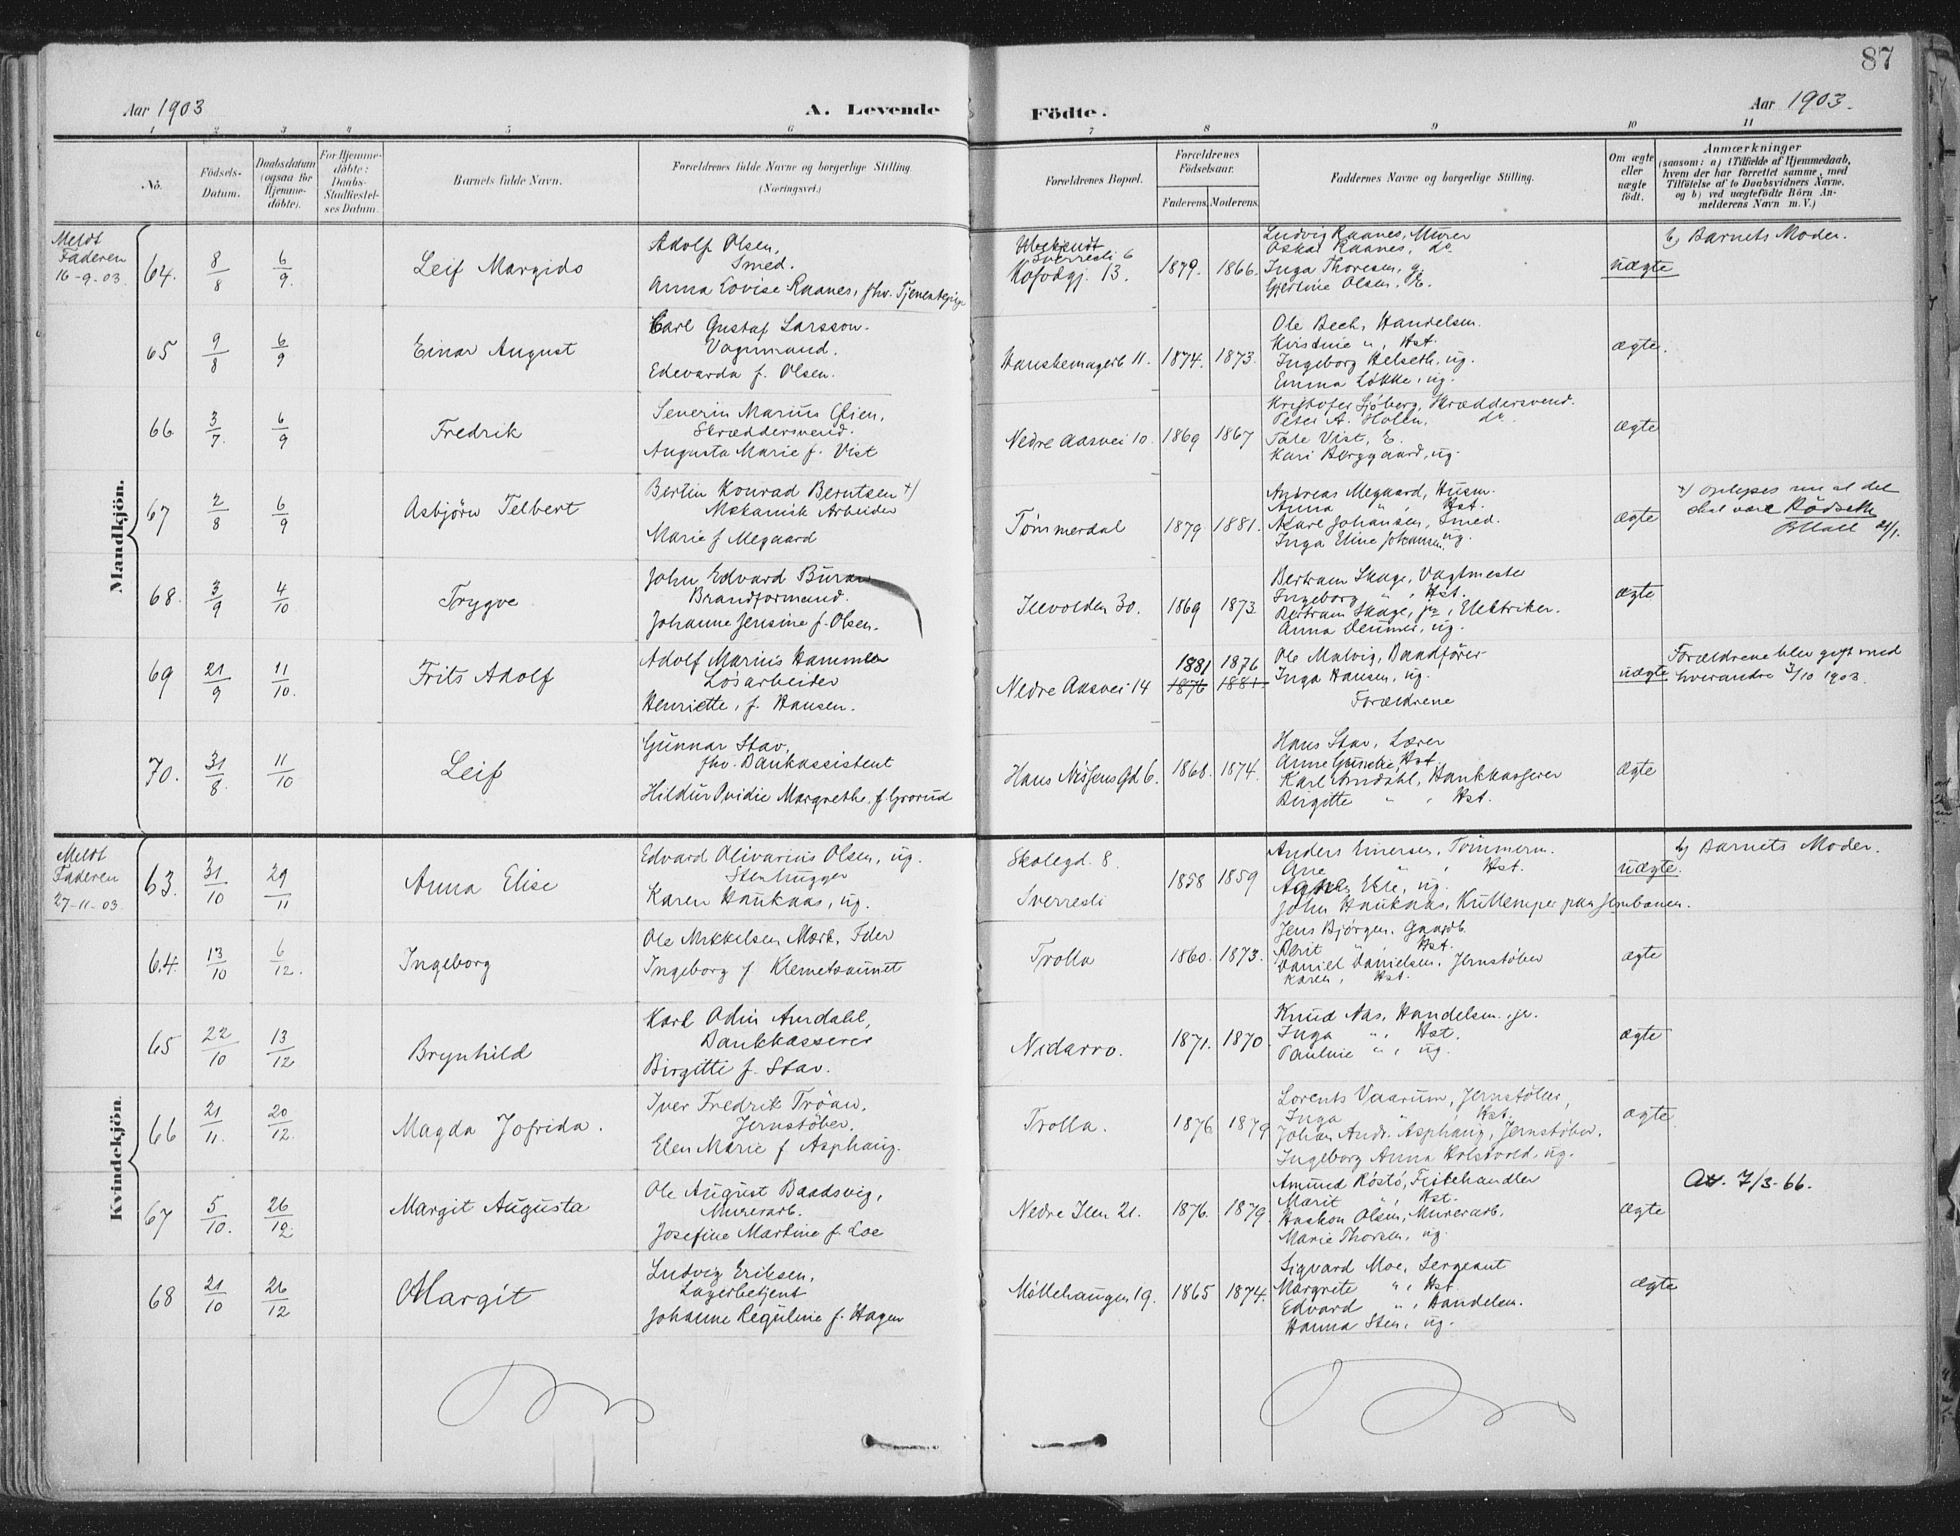 87
Aar 1903
A. Levende
Födte.
Aar 1903.
1 2 3 4 5 6 7 8 9 10 11
No.
Födsels-Datum.
Daabsdatum (ogsaa for Hjemme-döbte).
For Hjemme-döbte: Daabs-Stadfæstel-ses Datum.
Barnets fulde Navn.
Forældrenes fulde Navne og borgerlige Stilling.
(Næringsvei.)
Forældrenes Bopæl.
Forældrenes Födselsaar.
Faderens. Moderens.
Faddernes Navne og borgerlige Stilling.
Om ægte eller uægte födt.
Anmærkninger
(saasom: a) i Tilfælde af Hjemmedaab,
hvem der har forrettet samme, med
Tilföielse af to Daabsvidners Navne,
og b) ved uægtefödte Börn An-
melderens Navn m. V.)
Mandkjön.
Meldt
Faderen
16-9-03.
64. 8/8 6/9 Leif Margido
Adolf Olsen,
Smed.
Anna Lovise Raanes, fhv. Tjenestepige
Ubekjendt
Sverresli 6
Kofodgj. 13.
1879. 1866.
Ludvig Raanes, Murer
Oskar Raanes, do
Inga Thoresen, g.
Gjertine Olsen, E.
uægte
b) Barnets Moder.
65 9/8 6/9 Einar August
Carl Gustaf Larsson.
Vognmand.
Edevarda f. Olsen.
Hanskemagerb 11.
1874. 1873.
Ole Bech, Handelsm.
Kristine ", Hst.
Ingeborg Helseth, ug.
Emma Løkke, ug.
ægte.
66 3/7. 6/9 Fredrik
Severin Marius Øien,
Skræddersvend.
Augusta Marie f. Vist
Nedre Aasvei 10.
1869 1867
Kristofer Sjöberg, Skræddersvend.
Peter A. Holen, do.
Tale Vist, E.
Kari Berggaard, ug.
ægte
67 2/8 6/9 Asbjörn Telbert
Bertin Konrad Berntsen +)
Mekanisk Arbeider
Marie f Megaard
Tømmerdal
1879 1881.
Andreas Megaard, Husm.
Anna ", Hst.
Karl Johansen, Smed.
Inga Eline Johansen, ug.
ægte
+) oplyses nu at det
skal være Rödseth
21/1.
68. 3/9 4/10 Trygve
John Edvard Buran
Brandformand.
Johanne Jensine f. Olsen.
Ilevolden 30.
1869 1873.
Bertram Skage, Vagtmester
Ingeborg ", Hst.
Bertram Skage, jr, Elektriker.
Anna , ug.
ægte
69 21/9 11/10. Frits Adolf
Adolf Marius Hammer
Løsarbeider
Henriette, f. Hansen.
Nedre Aasvei 14
1881 1876
1876 1881.
Ole Malvig, Baadfører
Inga Hansen, ug.
Forældrene
uægte
Forældrene blev gift med
hverandre 3/10 1903.
70. 31/8. 11/10 Leif
Gunnar Stav,
fhv. Bankassistent
Hildur Ovidie Margrethe, f. Grorud
Hans Nissens Gd 6.
1868. 1874.
Hans Stav, Lærer
Anne , Hst.
Karl Amdahl, Bankkasserer
Birgitte ", Hst.
Ægte
Kvindekjön.
Meldt
Faderen
27-11-03.
63. 31/10 29/11 Anna Elise
Edvard Olivarius Olsen, ug.
Stenhugger
Karen Haukaas, ug.
Skolegd. 8.
Sverresli
1858 1859
Anders Einersen, Tømmerm.
Ane " Hst.
Agnes , ug.
John Haukaas, Kullemper paa Jernbanen.
uægte.
b) Barnets Moder.
64. 13/10 6/12. Ingeborg
Ole Mikkelsen Mork, Fder
Ingeborg f Klemetsaunet
Trolla
1860. 1873.
Jens Bjørgen. Gaardb.
Berit " Hst.
Daniel Danielsen, Jernstøber
Karen, Hst.
ægte
65 22/10 13/12 Brynhild
Karl Odin Amdahl,
Bankkasserer
Birgitte f. Stav.
Nidarvo.
1871. 1870.
Knud Aas, Handelsm. jr.
Inga ", Hst.
Pauline ", ug.
ægte
66 21/11. 20/12. Magda Jofrida.
Iver Fredrik Tröan,
Jernstöber,
Elen Marie f Asphaug.
Trolla.
1876 1879
Lorents Vaarum, Jernstøber,
Inga ", Hst.
Johan Andr. Asphaug, Jernstøber.
Ingeborg Anna , ug.
ægte
67 5/10. 26/12 Margit Augusta
Ole August Baadsvig,
Murerarb.
Josefine Martine f. Loe
Nedre Ilen 21.
1876. 1879.
Amund Röstö, Fiskehandler
Marit ", Hst.
Haakon Olsen, Murerarb.
Marie Thorsen, ug.
ægte
7/3-66.
68 21/10 26/12 Margit
Ludvig Eriksen,
Lagerbetjent
Johanne Reguline f. Hagen
Møllehaugen 19.
1865 1874.
Sigvard Moe, Sergeant
Margrete ", Hst.
Edvard ", Handelsm.
Hanna Sten, ug.
ægte